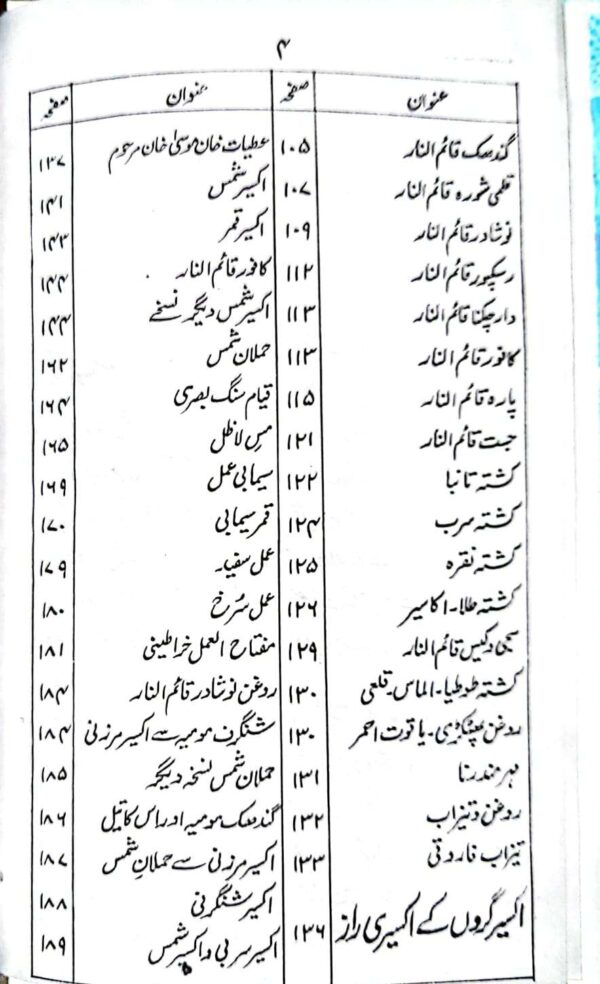 ۴
عنوان صفحہ عنوان صفحہ
گندھک قائم النار ۱۰۵ عطیات خان موسیٰ خان مرحوم ۱۳۷
قلمی شورہ قائم النار ۱۰۷ اکسیر شمس ۱۴۱
نوشادر قائم النار ۱۰۹ اکسیر قمر ۱۴۳
رسکپور قائم النار ۱۱۲ کافور قائم النار ۱۴۴
دار چکنا قائم النار ۱۱۳ اکسیر شمس دیگر نسخے ۱۴۴
کافور قائم النار ۱۱۳ حملان شمس ۱۶۲
پارہ قائم النار ۱۱۵ قیام سنگ بصری ۱۶۴
جست قائم النار ۱۲۱ مس لاظل ۱۶۵
کشتہ تانبا ۱۲۲ سیمابی عمل ۱۶۹
کشتہ سرب ۱۲۴ قمر سیمابی ۱۷۰
کشتہ نقرہ ۱۲۵ عمل سفید ۱۷۹
کشتہ طلا۔ اکاسیر ۱۲۶ عمل سُرخ ۱۸۰
سجی و کلس قائم النار ۱۲۹ مفتاح العمل خراطینی ۱۸۱
کشتہ طوطیا۔ الماس۔ قلعی ۱۳۰ روغن نوشادر قائم النار ۱۸۴
روغن پھٹکڑی۔ یاقوت احمر ۱۳۰ شنگرف مومیہ سے اکسیر مرزنی ۱۸۴
ہر مندرنا ۱۳۱ حملان شمس نسخہ دیگر ۱۸۵
روغن و تیزاب ۱۳۲ گندھک مومیہ اور اس کا تیل ۱۸۶
تیزاب فاروقی ۱۳۳ اکسیر مرزنی سے حملانِ شمس ۱۸۷
اکسیر گروں کے اکسیری راز ۱۳۶ اکسیر شنگرفی ۱۸۸
اکسیر سربی و اکسیر شمس ۱۸۹